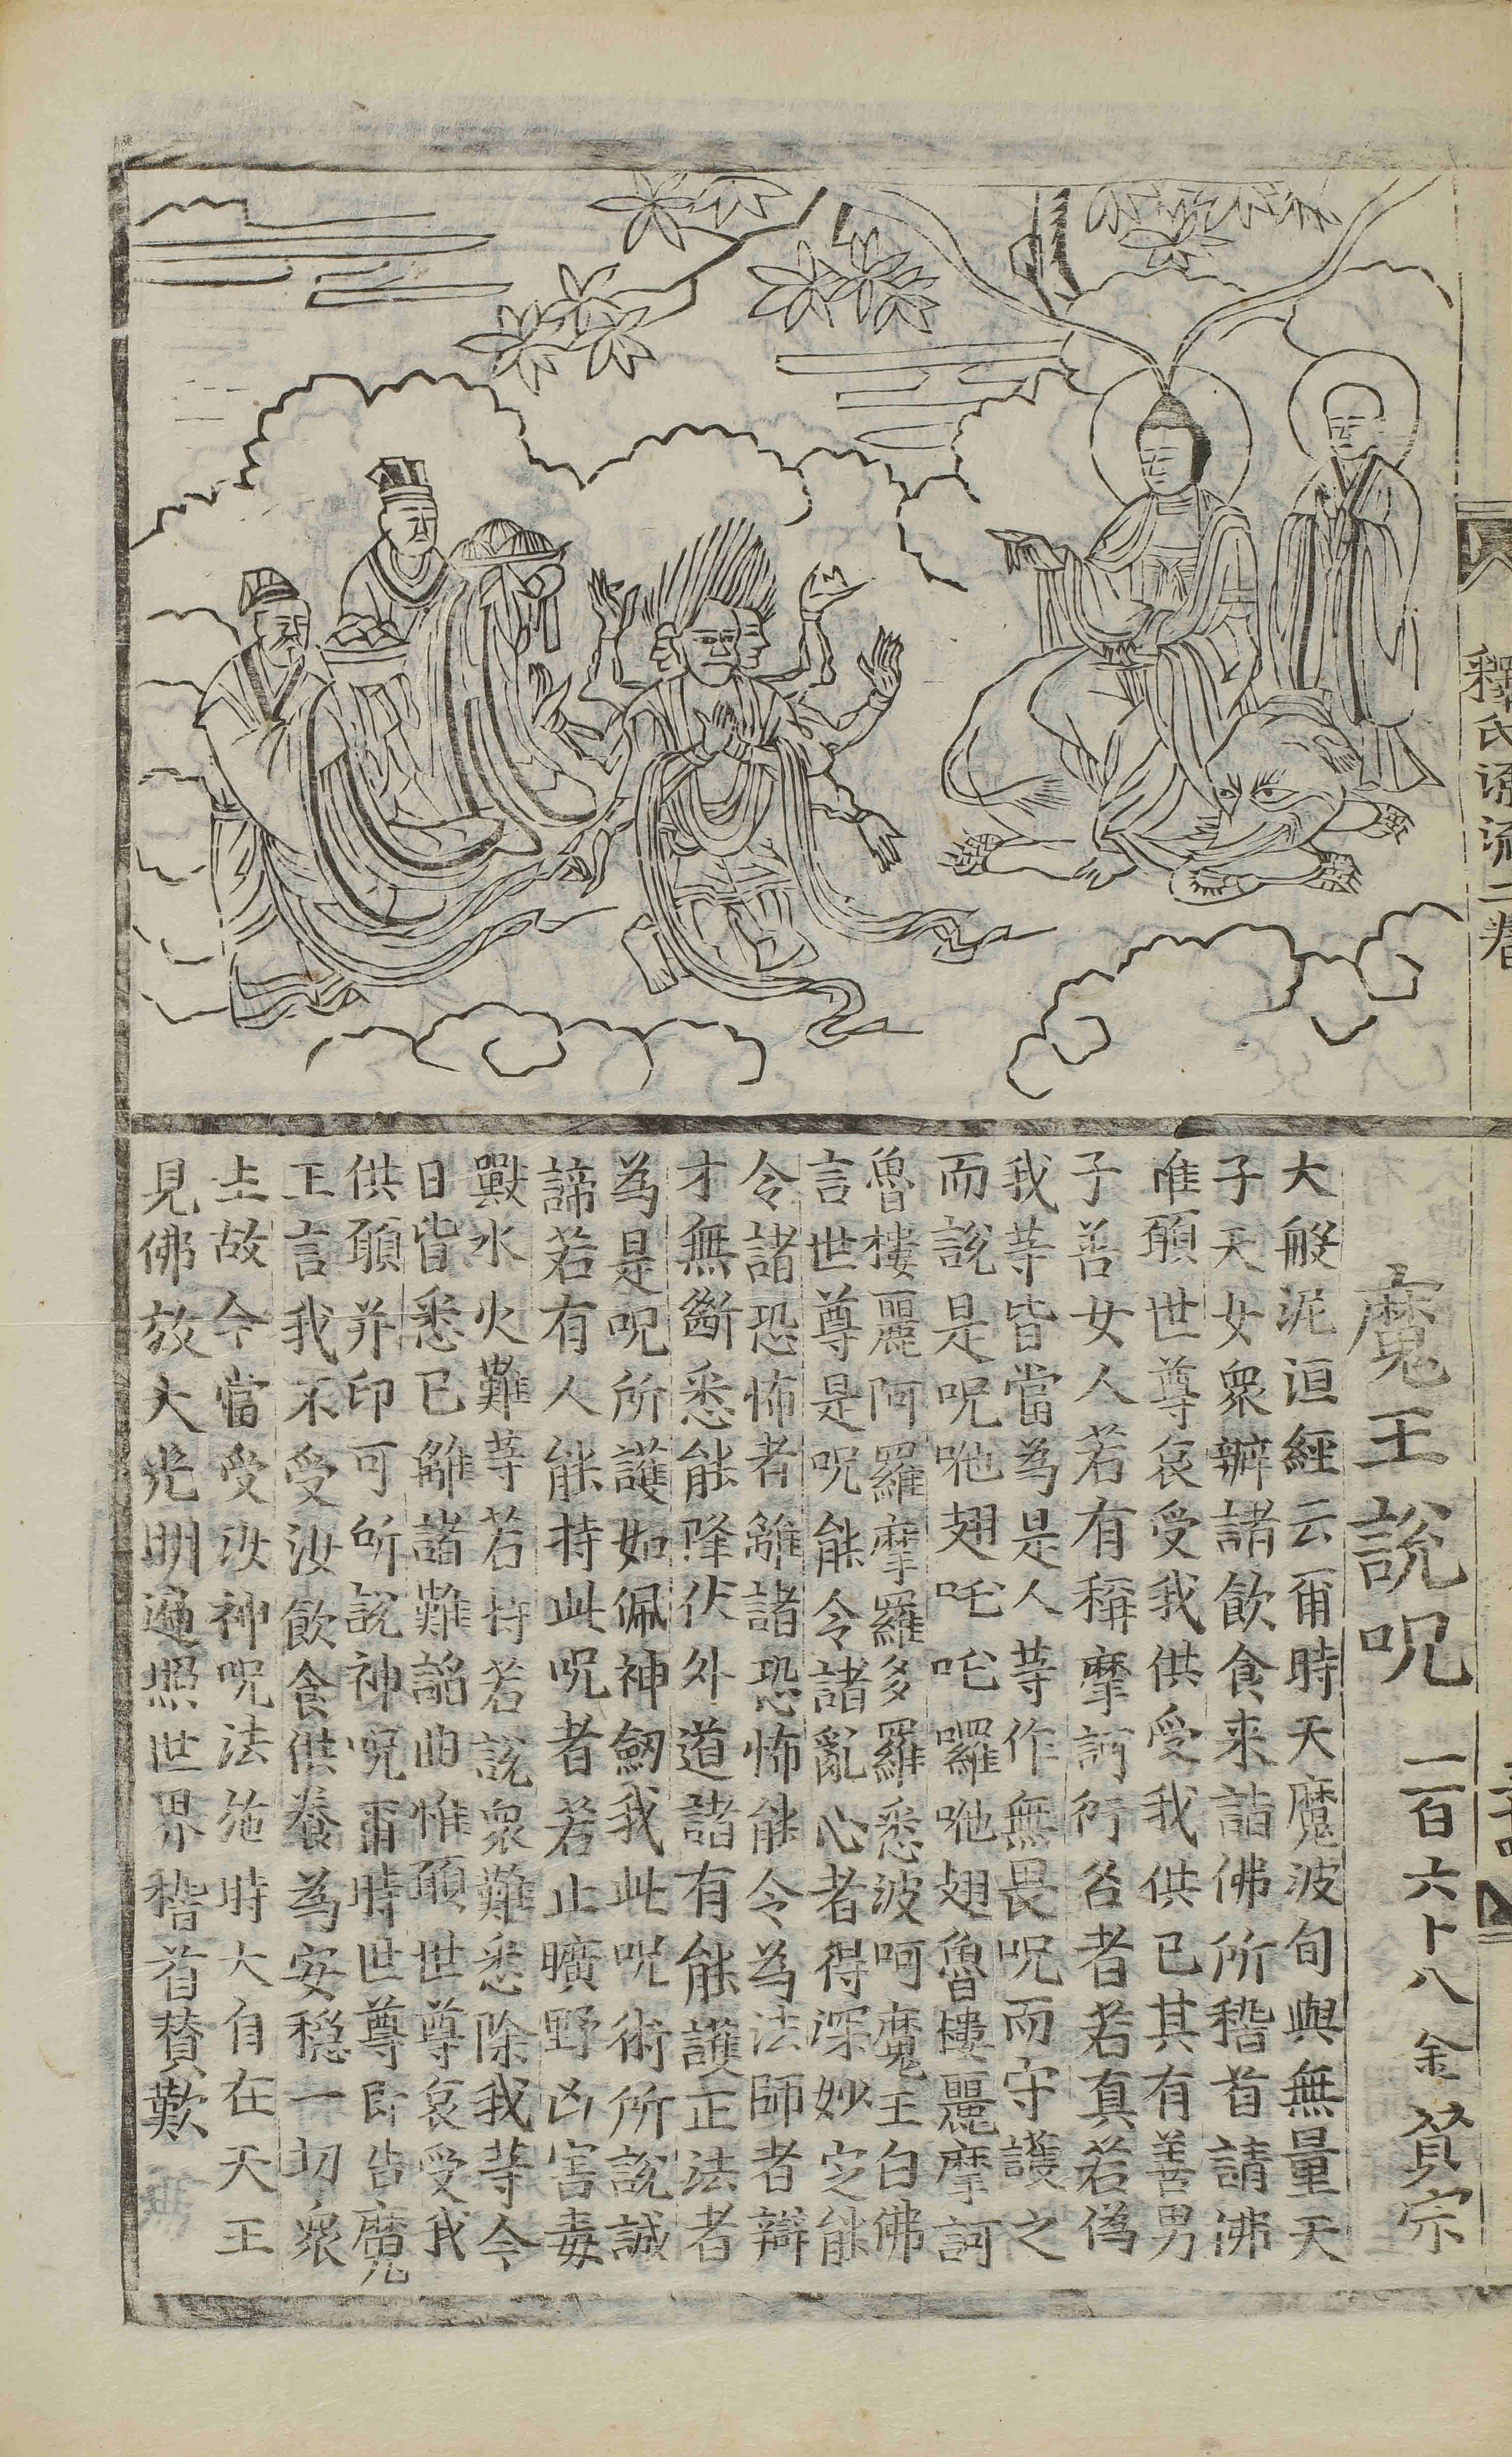 釋氏源流二卷
魔王說呪 一百六十八 金賛宗
大般泥洹經云爾時天魔波旬與無量天
子天女衆辦諸飲食来詣佛所稽首請沸
唯願世尊哀受我供受我供已其有善男
子善女人若有稱摩訶衍名者若真若偽
我䓁皆當為是人䓁作無畏呪而守護之
而說是呪咃翅吒吒囉咃翅魯樓麗摩訶
魯樓麗阿羅摩羅多羅悉波呵魔王白佛
言世尊是呪能令諸亂心者得深妙定能
令諸恐怖者離諸恐怖能令為法師者辯
才無斷悉能降伏外道諸有能護正法者
為是呪所護如佩神劒我此呪術所說誠
諦若有人能持此呪者若止曠野凶害毒
獸水火難䓁若持若說衆難悉除我䓁今
日皆悉已離諸難謟曲惟願世尊哀受我
供願并印可所說神呪爾時世尊即告魔
王言我不受汝飲食供養為安穩一切衆
生故今當受汝神呪法施時大自在天王
見佛放大光明遍照世界稽首賛歎